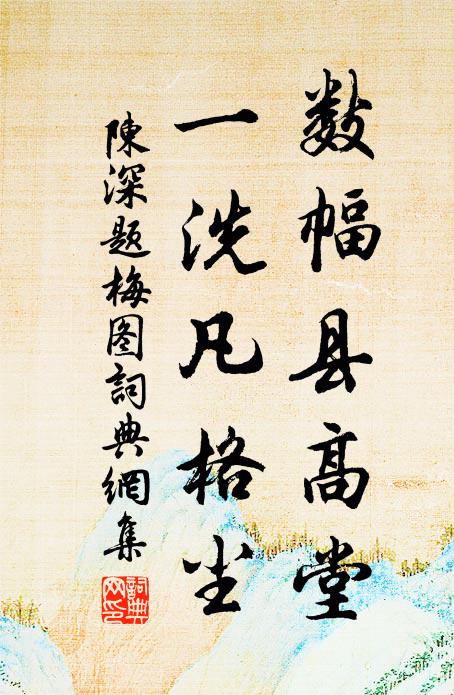 数幅县高堂
一洗凡格尘
陳深题梅图詞典網集
詞典网印